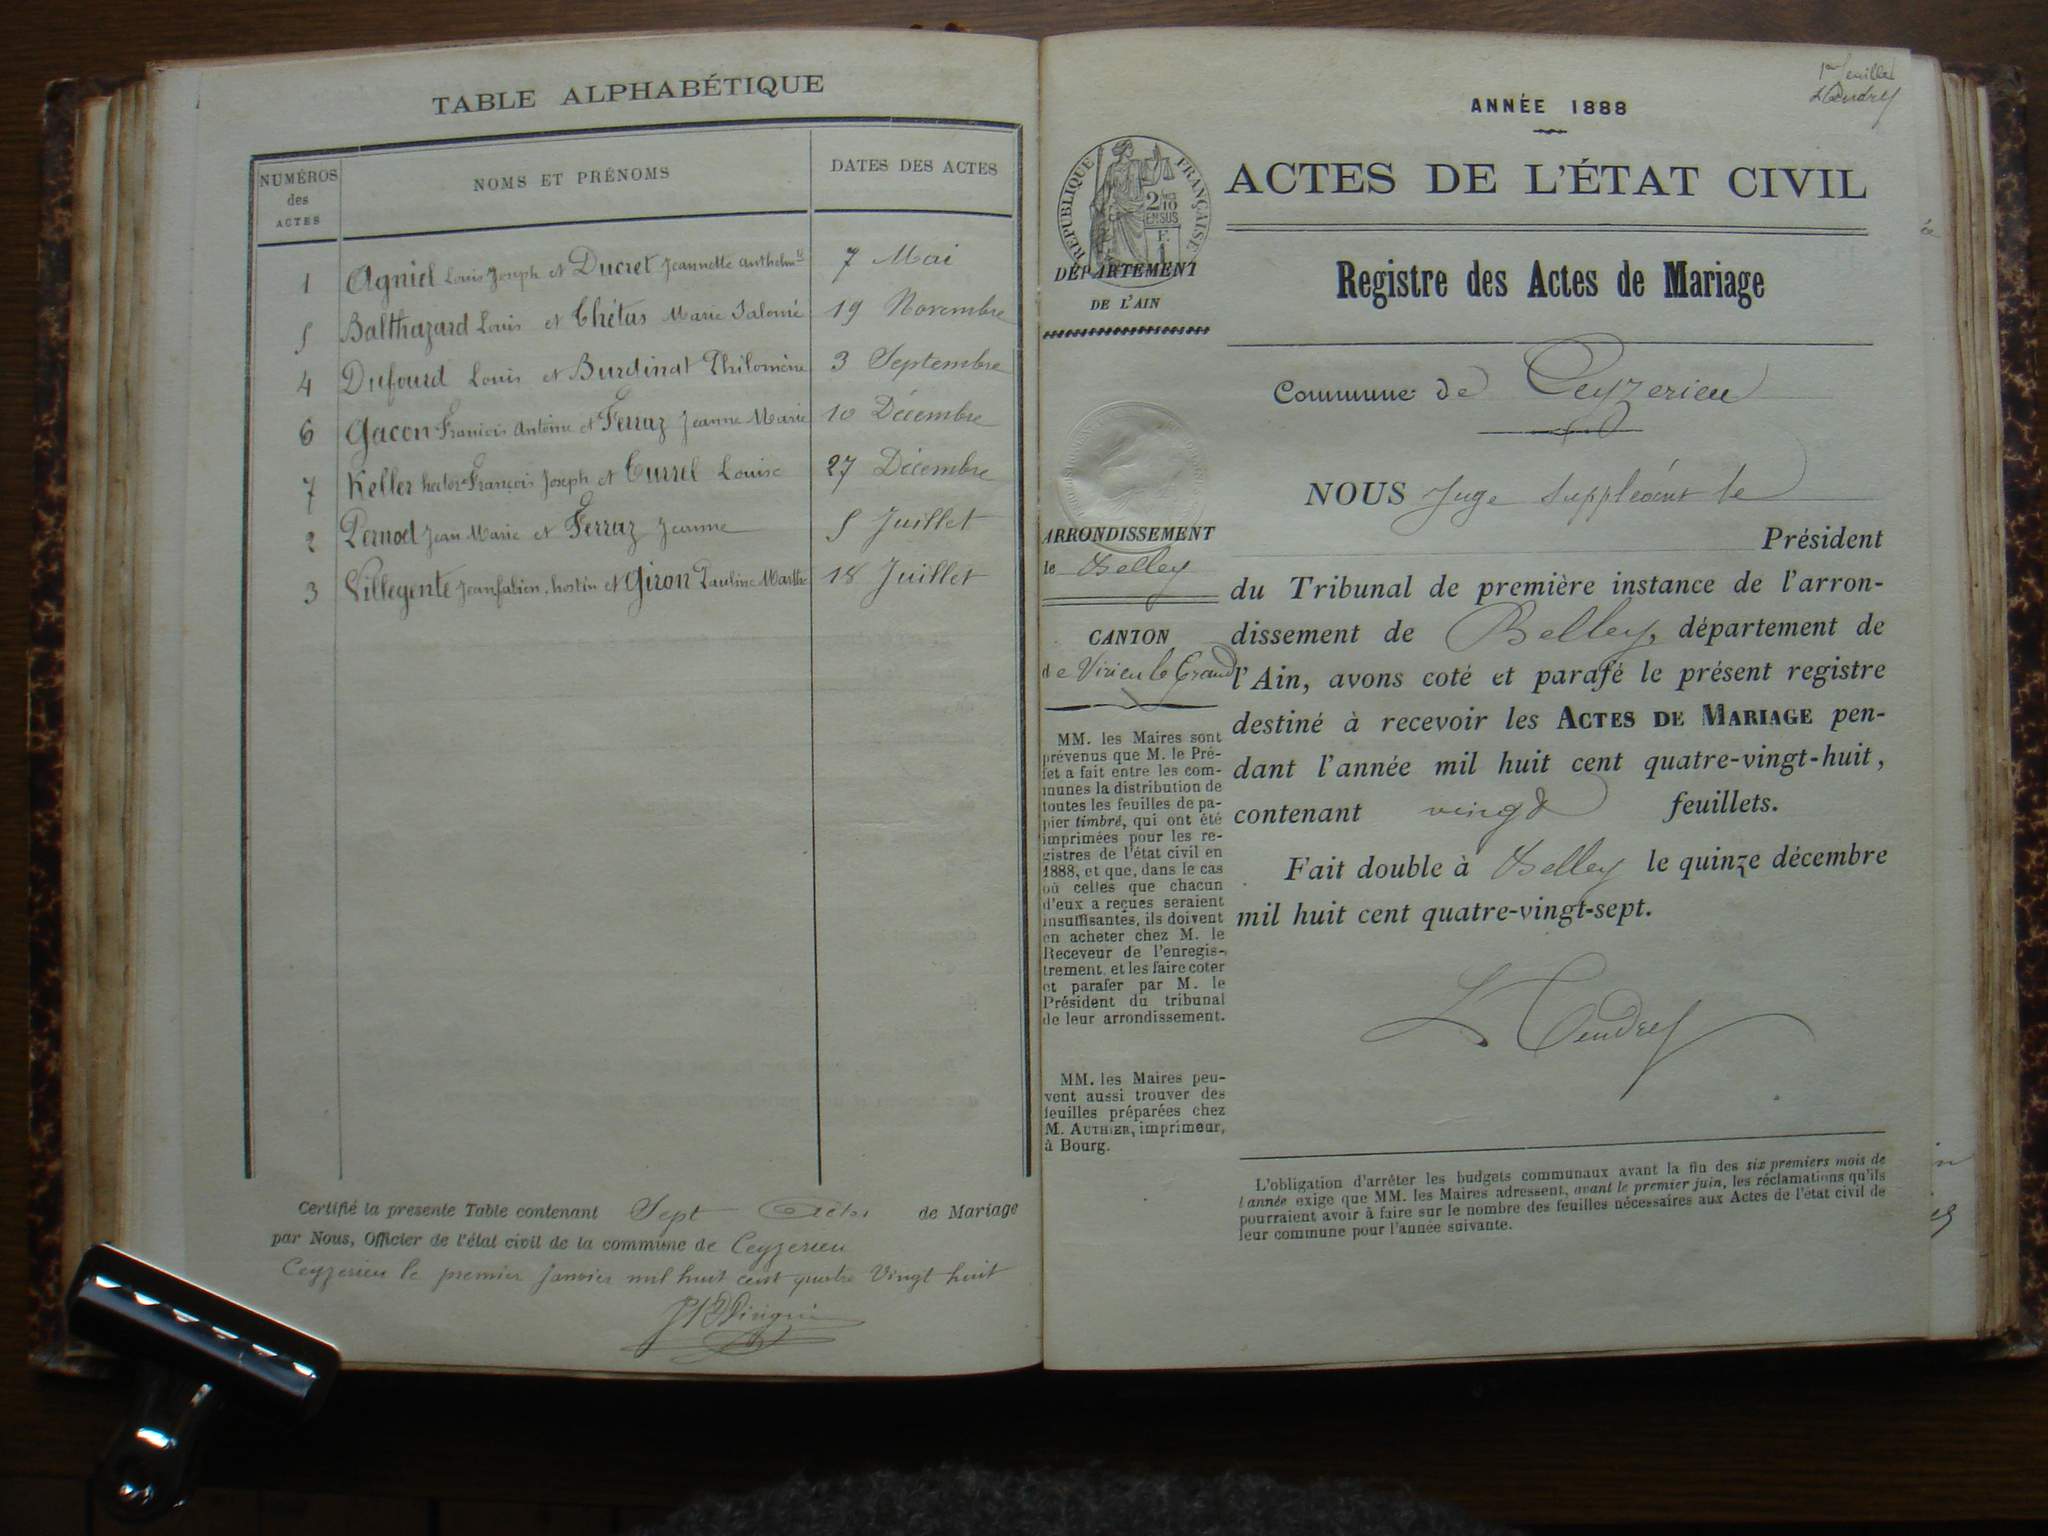 TABLE ALPHABÉTIQUE
NUMÉROS des ACTES
NOMS ET PRÉNOMS
DATES DES ACTES
1 Agniel Louis Joseph et Ducret Jeannette Anthelmte 7 Mai
5 Balthazard Louis et Chétas Marie Salomé 19 Novembre
4 Dufourd Louis et Burdinat Philomène 3 Septembre
6 Gacon François Antoine et Ferraz Jeanne Marie 10 Décembre
7 Keller hector François Joseph et Currel Louise 27 Décembre
2 Pernod Jean Marie et Ferraz Jeanne 5 Juillet
3 Villegente Jean fabien, hostin et Giron Pauline Marthe 18 Juillet
Certifié la présente Table contenant Sept Actes de Mariage
par Nous, Officier de l'état civil de la commune de Ceyzerieu
Ceyzerieu le premier Janvier mil huit cent quatre Vingt huit
1er feuillet
L Tendret
ANNÉE 1888
RÉPUBLIQUE FRANÇAISE
2/10
EN SUS
F.
1
ACTES DE L'ÉTAT CIVIL
DÉPARTEMENT
DE L'AIN
Registre des Actes de Mariage
Commune de Ceyzerieu
ARRONDISSEMENT
de Belley
CANTON
de Virieu le Grand
MM. les Maires sont
prévenus que M. le Pré-
fet a fait entre les com-
munes la distribution de
toutes les feuilles de pa-
pier timbré, qui ont été
imprimées pour les re-
gistres de l'état civil en
1888, et que, dans le cas
où celles que chacun
d'eux a reçues seraient
insuffisantes, ils doivent
en acheter chez M. le
Receveur de l'enregis-
trement, et les faire coter
et parafer par M. le
Président du tribunal
de leur arrondissement.
MM. les Maires peu-
vent aussi trouver des
feuilles préparées chez
M. AUTHIER, imprimeur,
à Bourg.
NOUS Juge suppléant le
Président
du Tribunal de première instance de l'arron-
dissement de Belley, département de
l'Ain, avons coté et parafé le présent registre
destiné à recevoir les ACTES DE MARIAGE pen-
dant l'année mil huit cent quatre-vingt-huit,
contenant vingt feuillets.
Fait double à Belley le quinze décembre
mil huit cent quatre-vingt-sept.
L Tendret
L'obligation d'arrêter les budgets communaux avant la fin des six premiers mois de
l'année exige que MM. les Maires adressent, avant le premier juin, les réclamations qu'ils
pourraient avoir à faire sur le nombre des feuilles nécessaires aux Actes de l'état civil de
leur commune pour l'année suivante.